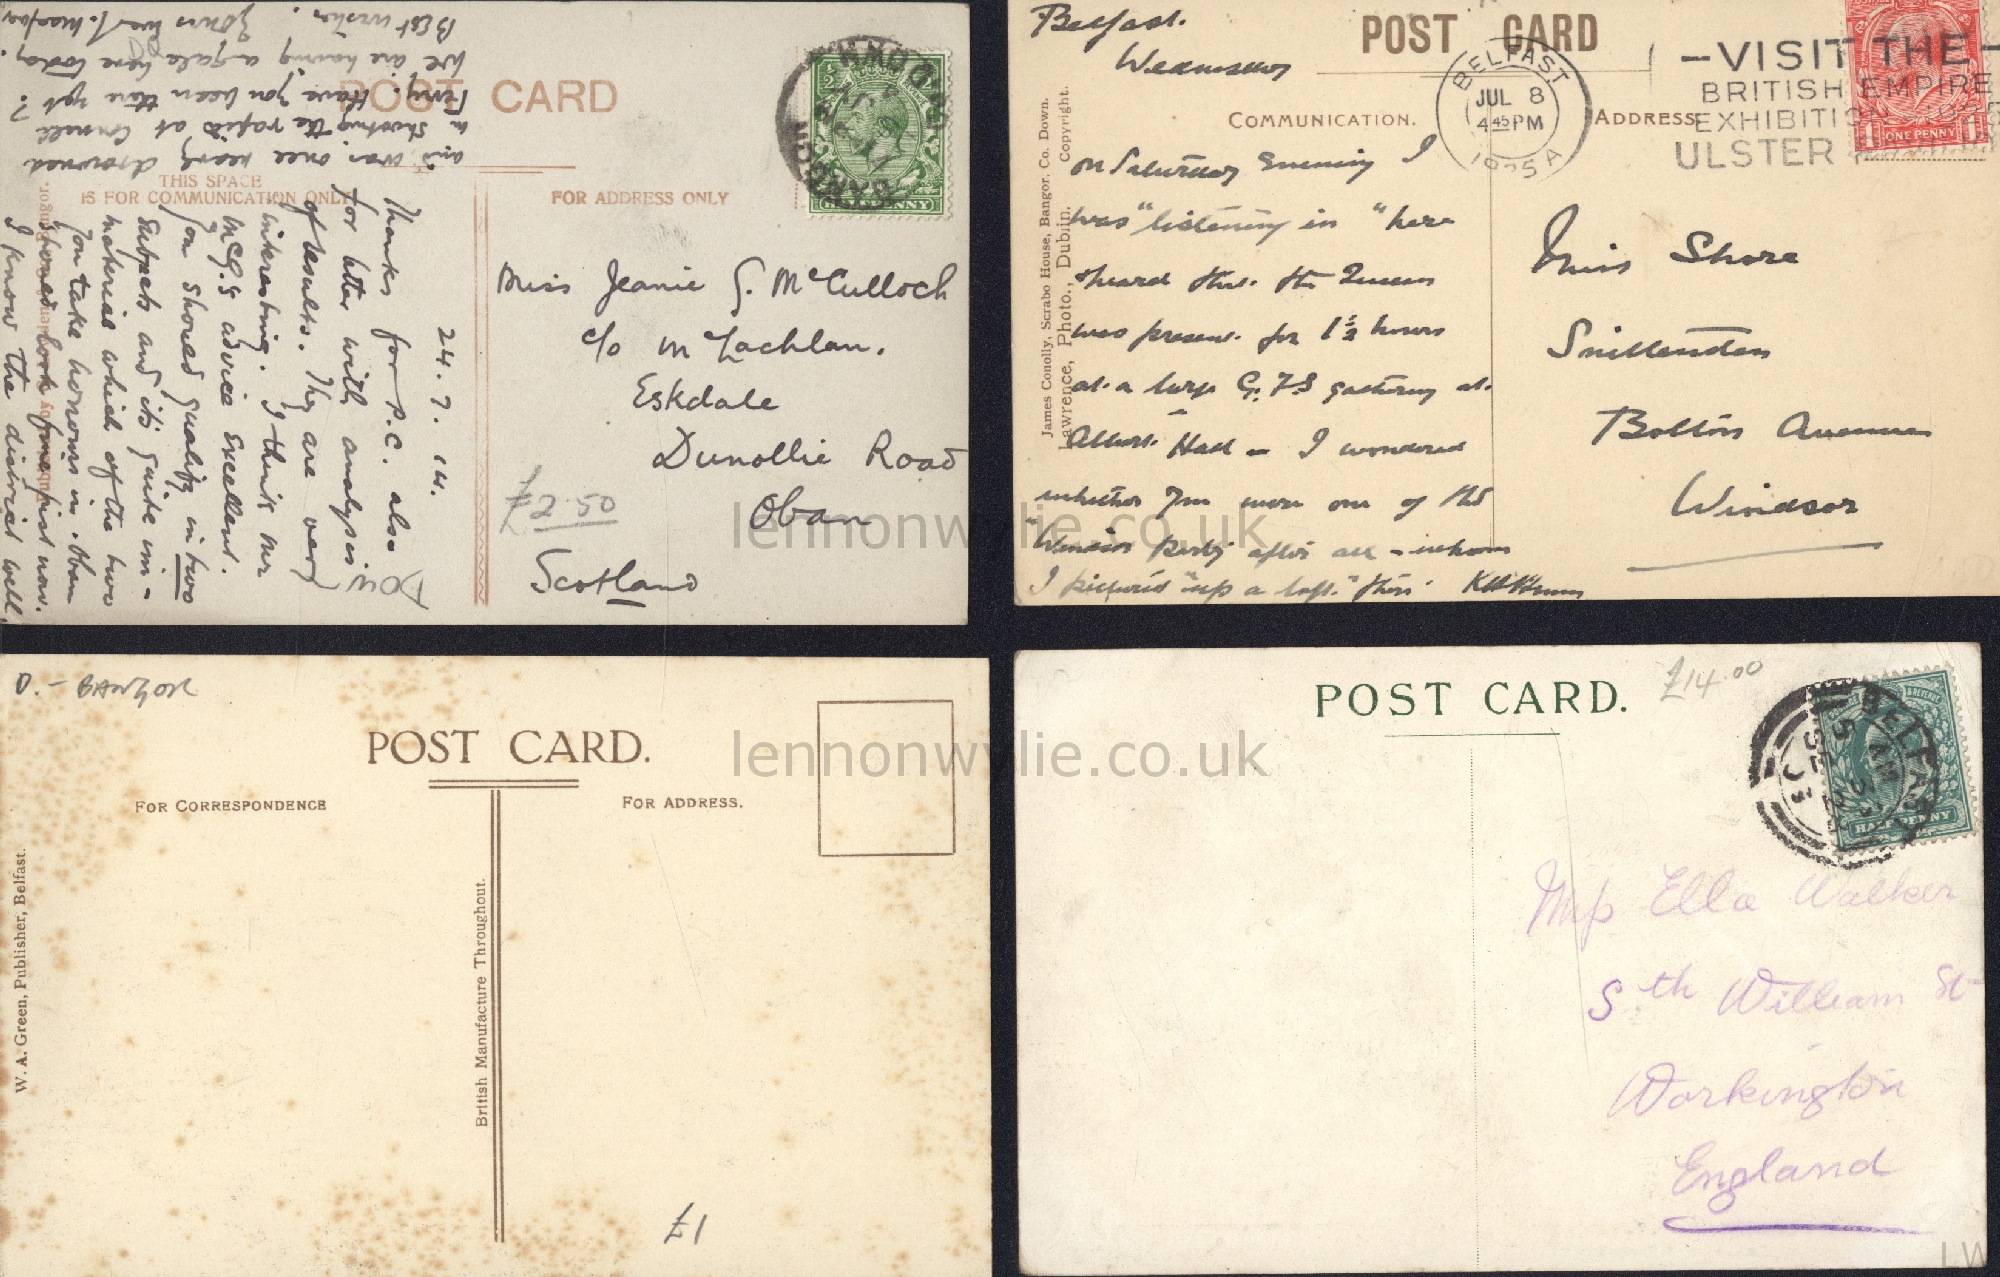 POST CARD
THIS SPACE
IS FOR COMMUNICATION ONLY
FOR ADDRESS ONLY
24.7.14.
Thanks for P.C. also
for letter with analysis
of results. They are very
interesting. I think our
McG.'s advice excellent.
You showed quality in two
subjects and its quite im-
material which of the two
you take honours in. Oban
should look fine just now.
I know the district well
and was once nearly drowned
in shooting the rapids at Connell
Ferry. Have you been there yet?
We are having a gale here today.
Best wishes.
Miss Jeanie G. McCulloch
c/o McLachlan.
Eskdale
Dunollie Road
Oban
Scotland
£2.50
DOWN
BANGOR
CO. DOWN
HALFPENNY
POST CARD
Belfast.
Wednesday
COMMUNICATION.
ADDRESS
BELFAST
JUL 8
4 45 PM
1925 A
VISIT THE
BRITISH EMPIRE
EXHIBITION
ULSTER
ONE PENNY
James Conolly, Scrabo House, Bangor, Co. Down.
Lawrence, Photo., Dublin. Copyright.
on Saturday Evening I
was "listening in" here
& heard that the Queen
was present for 1½ hours
at a large G.F.S gathering at
Albert Hall - I wondered
whether you were one of the
Windsor party after all - whom
I pictured "up a loft" there
Miss Shore
Snittenden
Bolton Avenue
Windsor
D. - BANGOR
POST CARD.
FOR CORRESPONDENCE
FOR ADDRESS.
W. A. Green, Publisher, Belfast.
British Manufacture Throughout.
£1
POST CARD.
£14.00
BELFAST
HALFPENNY
Miss Ella Walker
Sth William St
Workington
England
lennonwylie.co.uk
lennonwylie.co.uk
LW